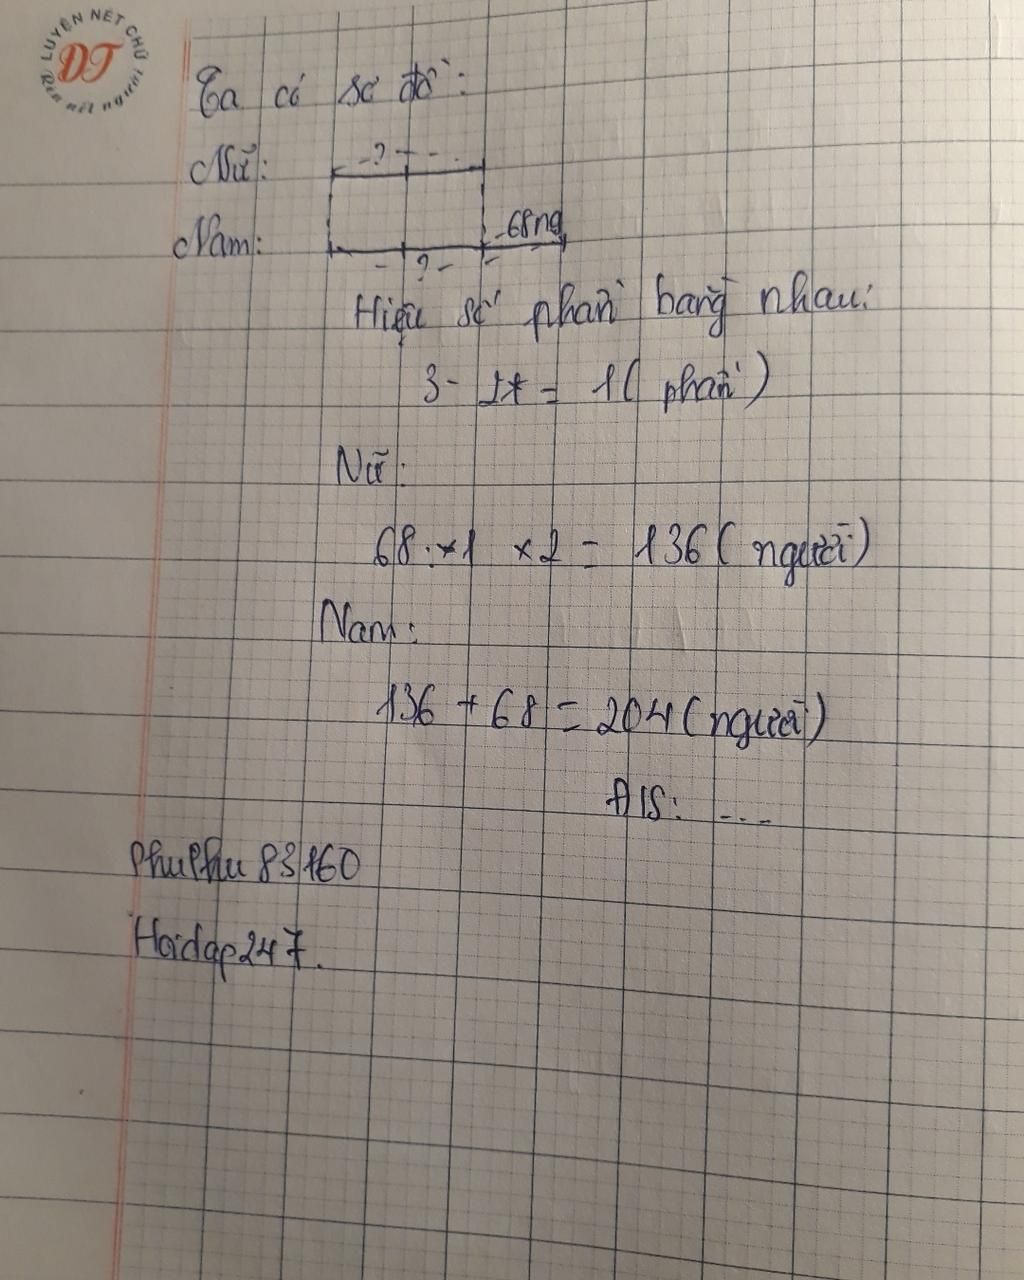 LUYỆN NÉT CHỮ
ĐT
Rèn nết người
Ta có sơ đồ:
Nữ: ?
Nam: 68ng
?
Hiệu số phần bằng nhau:
3 - 2 = 1 ( phần )
Nữ:
68 : 1 x 2 = 136 ( người )
Nam:
136 + 68 = 204 ( người )
Đ/S: ...
PhuPhu83160
Hoidap247.